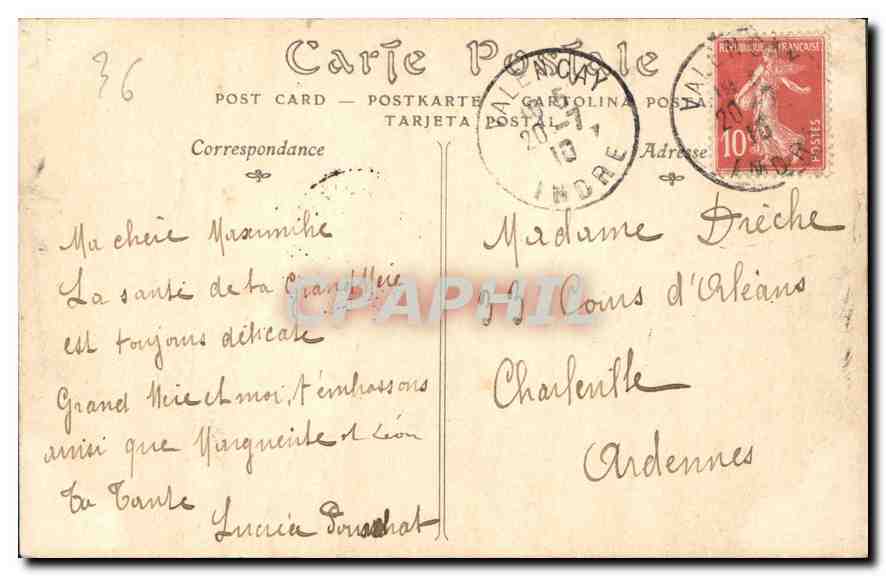 36
Carte Postale
POST CARD — POSTKARTE — CARTOLINA POSTA
TARJETA POSTAL
Correspondance
Adresse
VALENÇAY
20 -7
10
INDRE
REPUBLIQUE FRANÇAISE
10
POSTES
VALENÇAY
20
10
INDRE
Ma chère Maximilie
La santé de ta Grand Mère
est toujours délicate
Grand Mère et moi, t'embrassons
ainsi que Marguerite et Léon
Ta Tante
Lucrèce
Madame Drèche
33 Cours d'Orléans
Charleville
Ardennes
CPAPHIL